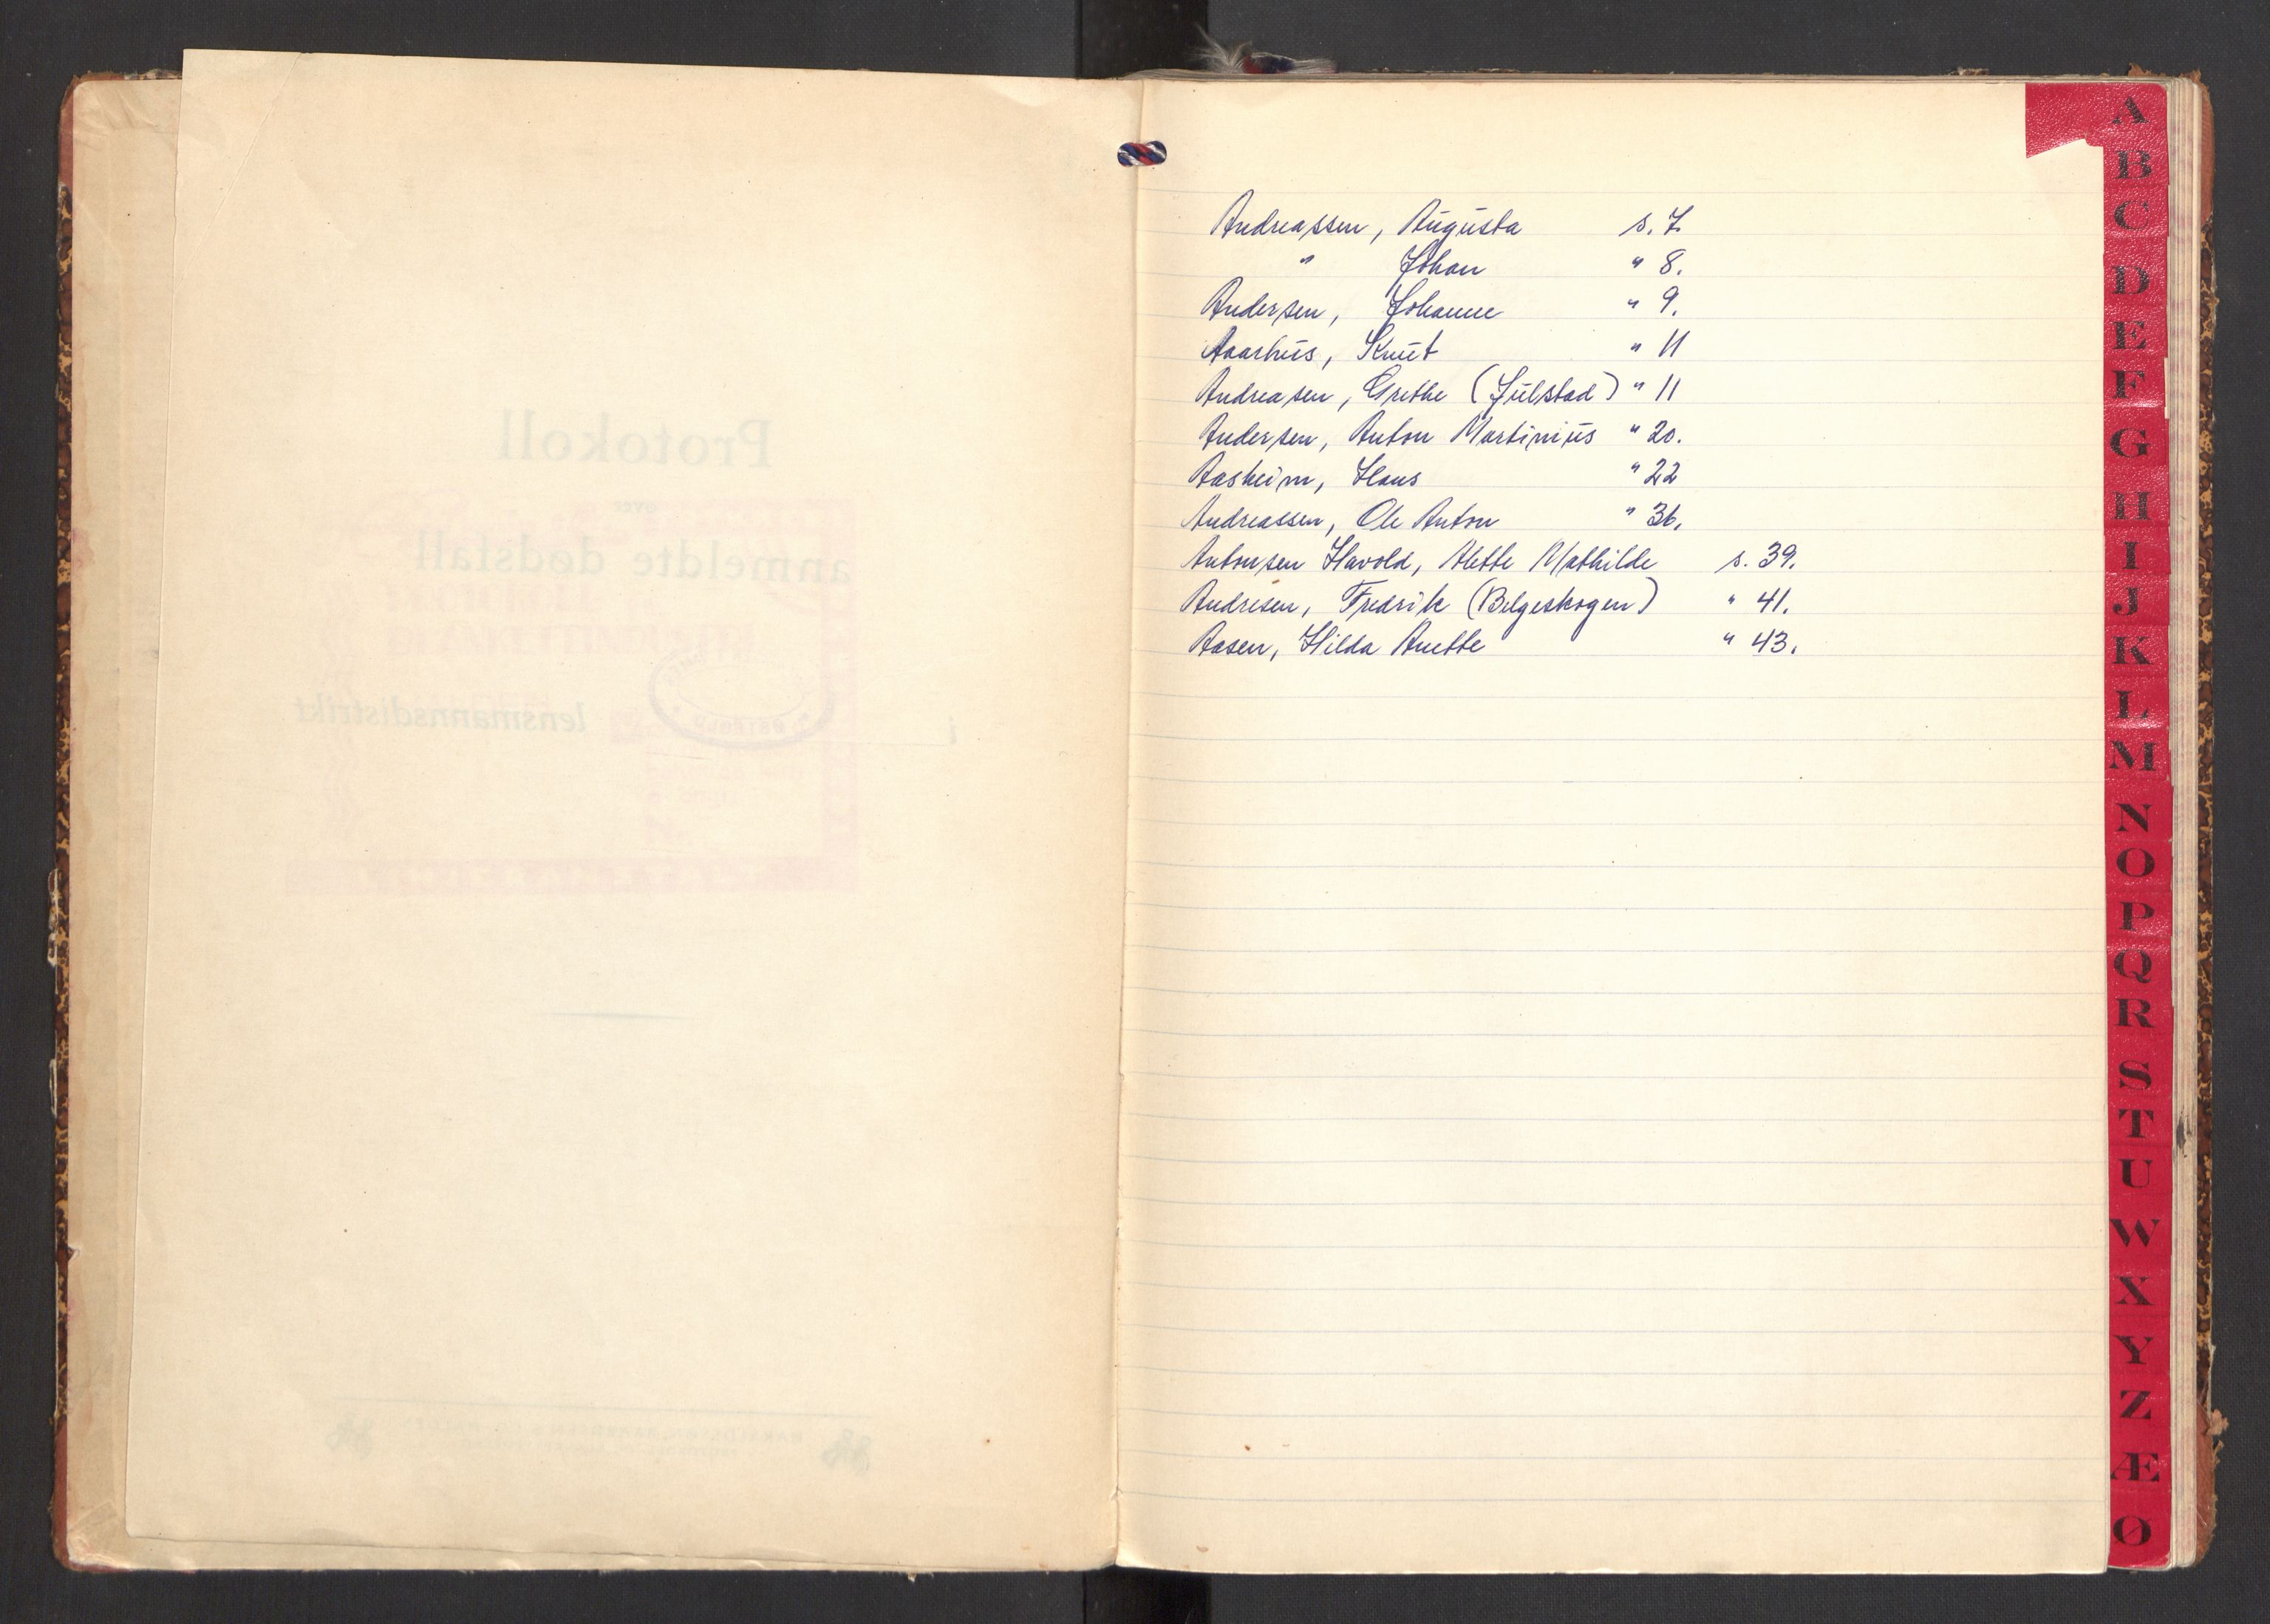 Protokoll
over
anmeldte dødsfall
i lensmannsdistrikt
Andreassen, Augusta s. 7.
" Johan " 8.
Andersen, Johanne " 9.
Aaarhus, Knut " 11
Andreasen, Grethe (Julstad) " 11
Andersen, Anton Martinius " 20.
Aasheim, Hans " 22
Andreassen, Ole Anton " 36.
Antonsen Havold, Alette Mathilde s. 39.
Andresen, Fredrik (Bilgeskogen) " 41.
Aasen, Hilda Anette " 43.
A
B
C
D
E
F
G
H
I
J
K
L
M
N
O
P
Q
R
S
T
U
W
X
Y
Z
Æ
Ø